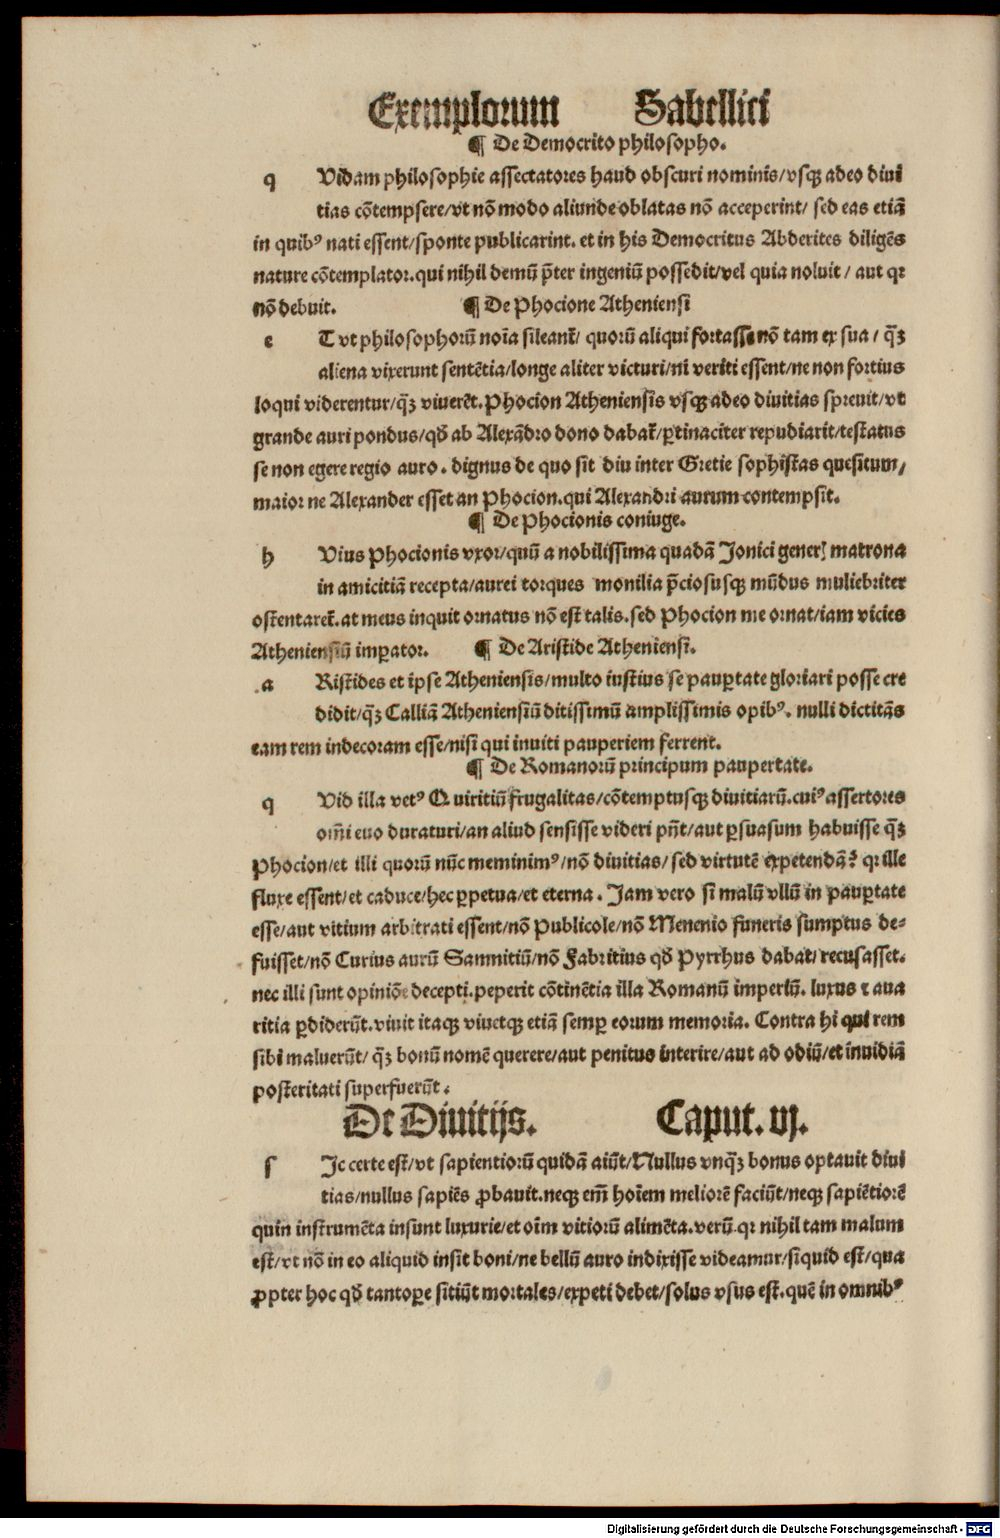 Exemplorum Sabellici
¶ De Democrito philosopho.
q Vidam philosophie assectatores haud obscuri nominis/vsqꝫ adeo diui
tias cõtempsere/vt nõ modo aliunde oblatas nõ acceperint/ sed eas etiã
in quibꝰ nati essent/sponte publicarint. et in his Democritus Abderites diligẽs
nature cõtemplator. qui nihil demũ p̃ter ingeniũ possedit/vel quia noluit / aut qꝛ
nõ debuit. ¶ De Phocione Atheniensi
e T vt philosophorũ noĩa sileant᷑/ quorũ aliqui fortasse nõ tam ex sua / q̃ꝫ
aliena vixerunt sentẽtia/longe aliter victuri/ni veriti essent/ne non fortius
loqui viderentur/q̃ꝫ viuerẽt. Phocion Atheniensis vsqꝫ adeo diuitias spreuit/vt
grande auri pondus/qđ ab Alexãdro dono dabat᷑/ ꝑtinaciter repudiarit/testatus
se non egere regio auro. dignus de quo sit diu inter Gretie sophistas quesitum/
maior ne Alexander esset an Phocion. qui Alexandri aurum contempsit.
¶ De Phocionis coniuge.
h Vius Phocionis vxor/quũ a nobilissima quadã Jonici generꝭ matrona
in amicitiã recepta/aurei torques monilia p̃ciosusqꝫ mũdus muliebriter
ostentaret᷑. at meus inquit ornatus nõ est talis. sed Phocion me ornat/iam vicies
Atheniensiũ imꝑator. ¶ De Aristide Atheniensi.
a Ristides et ipse Atheniensis/multo iustius se pauꝑtate gloriari posse cre
didit/q̃ꝫ Calliã Atheniensiũ ditissimũ amplissimis opibꝰ. nulli dictitãs
eam rem indecoram esse/nisi qui inuiti pauperiem ferrent.
¶ De Romanorũ principum paupertate.
q Vid illa vetꝰ Quiritiũ frugalitas/cõtemptusqꝫ diuitiarũ. cuiꝰ assertores
om̃i euo duraturi/an aliud sensisse videri pñt/aut ꝑsuasum habuisse q̃ꝫ
Phocion/et illi quorũ nũc meminimꝰ/nõ diuitias/ sed virtutẽ expetendã? qꝛ ille
fluxe essent/et caduce/hec ꝑpetua/et eterna. Jam vero si malũ vllũ in pauꝑtate
esse/aut vitium arbitrati essent/nõ Publicole/nõ Menenio funeris sumptus de-
fuisset/nõ Curius aurũ Samnitiũ/nõ Fabritius qđ Pyrrhus dabat/ recusasset.
nec illi sunt opiniõe decepti. peperit cõtinẽtia illa Romanũ imperiũ. luxus ⁊ aua
ritia ꝑdiderũt. viuit itaqꝫ viuetqꝫ etiã semꝑ eorum memoria. Contra hi qui rem
sibi maluerũt/ q̃ꝫ bonũ nomẽ querere/aut penitus interire/aut ad odiũ/et inuidiã
posteritati superfuerũt.
De Diuitijs. Caput. vj.
s Jc certe est/vt sapientiorũ quidã aiũt/Nullus vnq̃ꝫ bonus optauit diui
tias/nullus sapiẽs ꝓbauit. neqꝫ em̃ hoĩem meliorẽ faciũt/neqꝫ sapiẽtiorẽ
quin instrumẽta insunt luxurie/et oĩm vitiorũ alimẽta. verũ. qꝛ nihil tam malum
est/vt nõ in eo aliquid insit boni/ne bellũ auro indixisse videamur/siquid est/qua
ꝓpter hoc qđ tantoꝑe sitiũt mortales/expeti debet/solus vsus est. quẽ in omnibꝰ
Digitalisierung gefördert durch die Deutsche Forschungsgemeinschaft - DFG